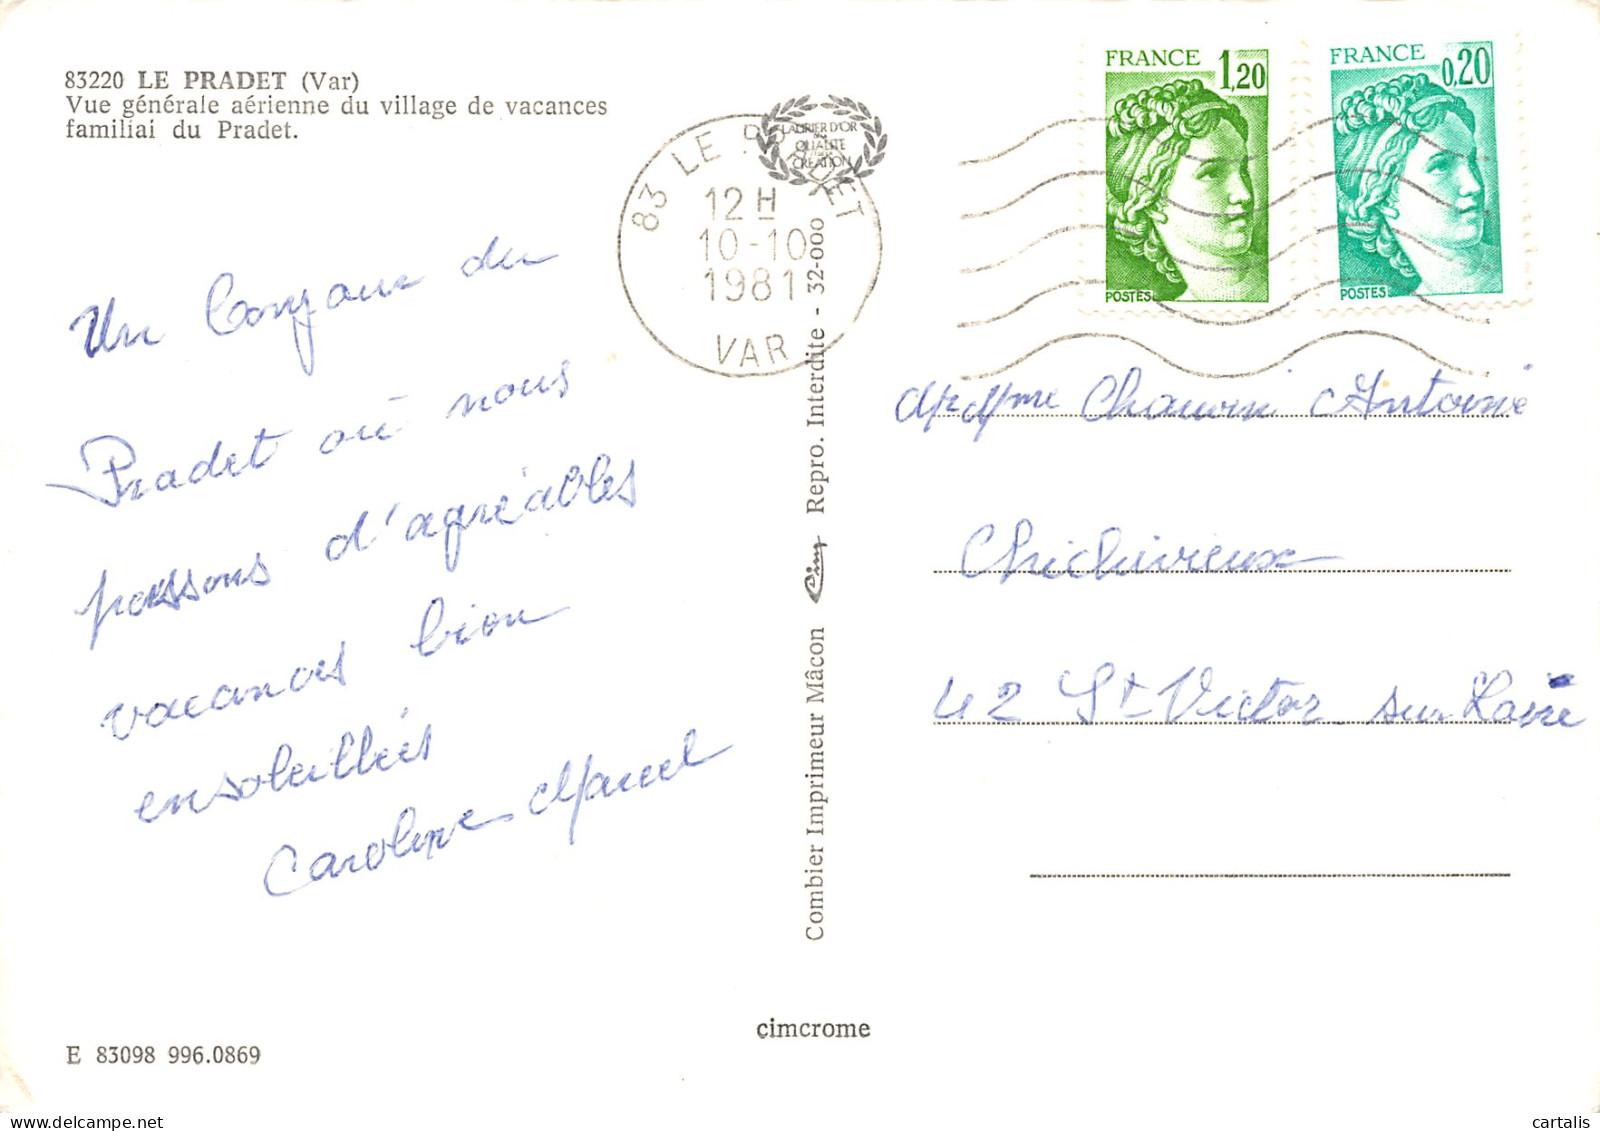 83220 LE PRADET (Var)
Vue générale aérienne du village de vacances
familiai du Pradet.
Un bonjour du
Pradet où nous
passons d'agréables
vacances bien
ensoleillées
Caroline Marcel
83 LE PRADET
12 H
10-10
1981
VAR
LAURIER D'OR
QUALITÉ
CRÉATION
Combier Imprimeur Mâcon Cim Repro. Interdite - 32-000
FRANCE 1,20
POSTES
FRANCE 0,20
POSTES
Mr Mme Chauvin Antoine
Chichivieux
42 St Victor sur Loire
cimcrome
E 83098 996.0869
cartalis